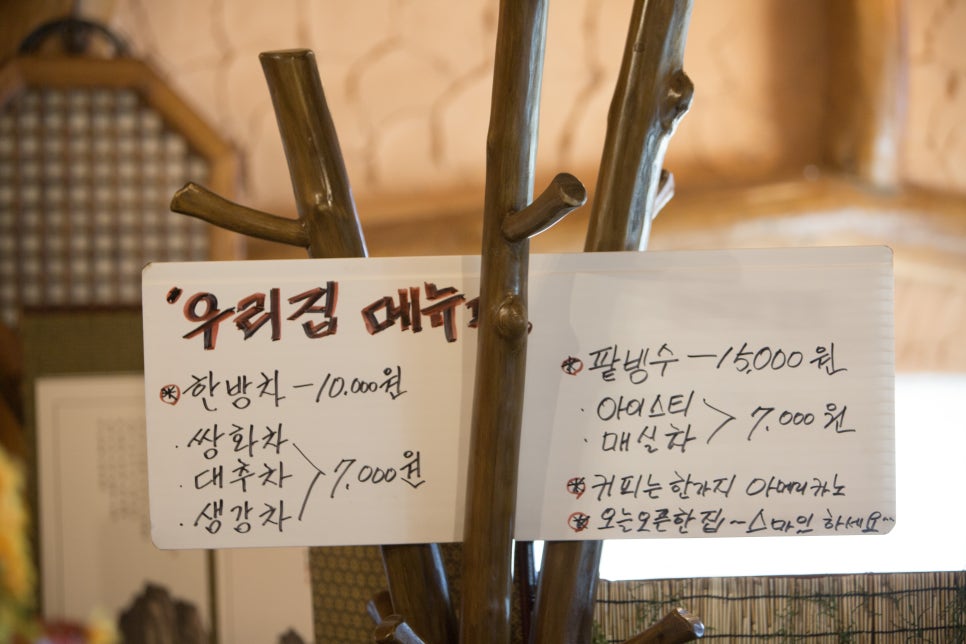 우리집 메뉴
한방차 - 10.000원
쌍화차
대추차
생강차
7,000원
팥빙수 - 15,000원
아이스티
매실차
7.000원
커피는 한가지 아메리카노
오늘오픈한집~스마일 하세요~